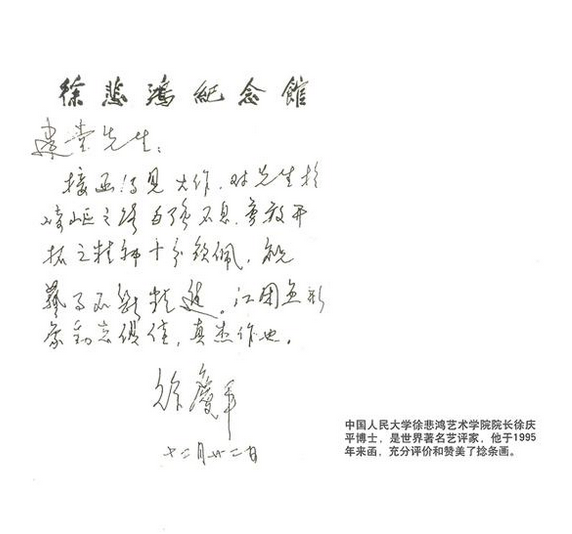 徐悲鸿紀念館
建堂先生:
接函得见大作,对先生于
崎岖之路自强不息,勇敢开
拓之精神十分钦佩,祝
艺事不断精进。江团鱼形
象动态俱佳,真杰作也。
徐庆平
十二月廿二日
中国人民大学徐悲鸿艺术学院院长徐庆
平博士,是世界著名艺评家,他于1995
年来函,充分评价和赞美了捻条画。